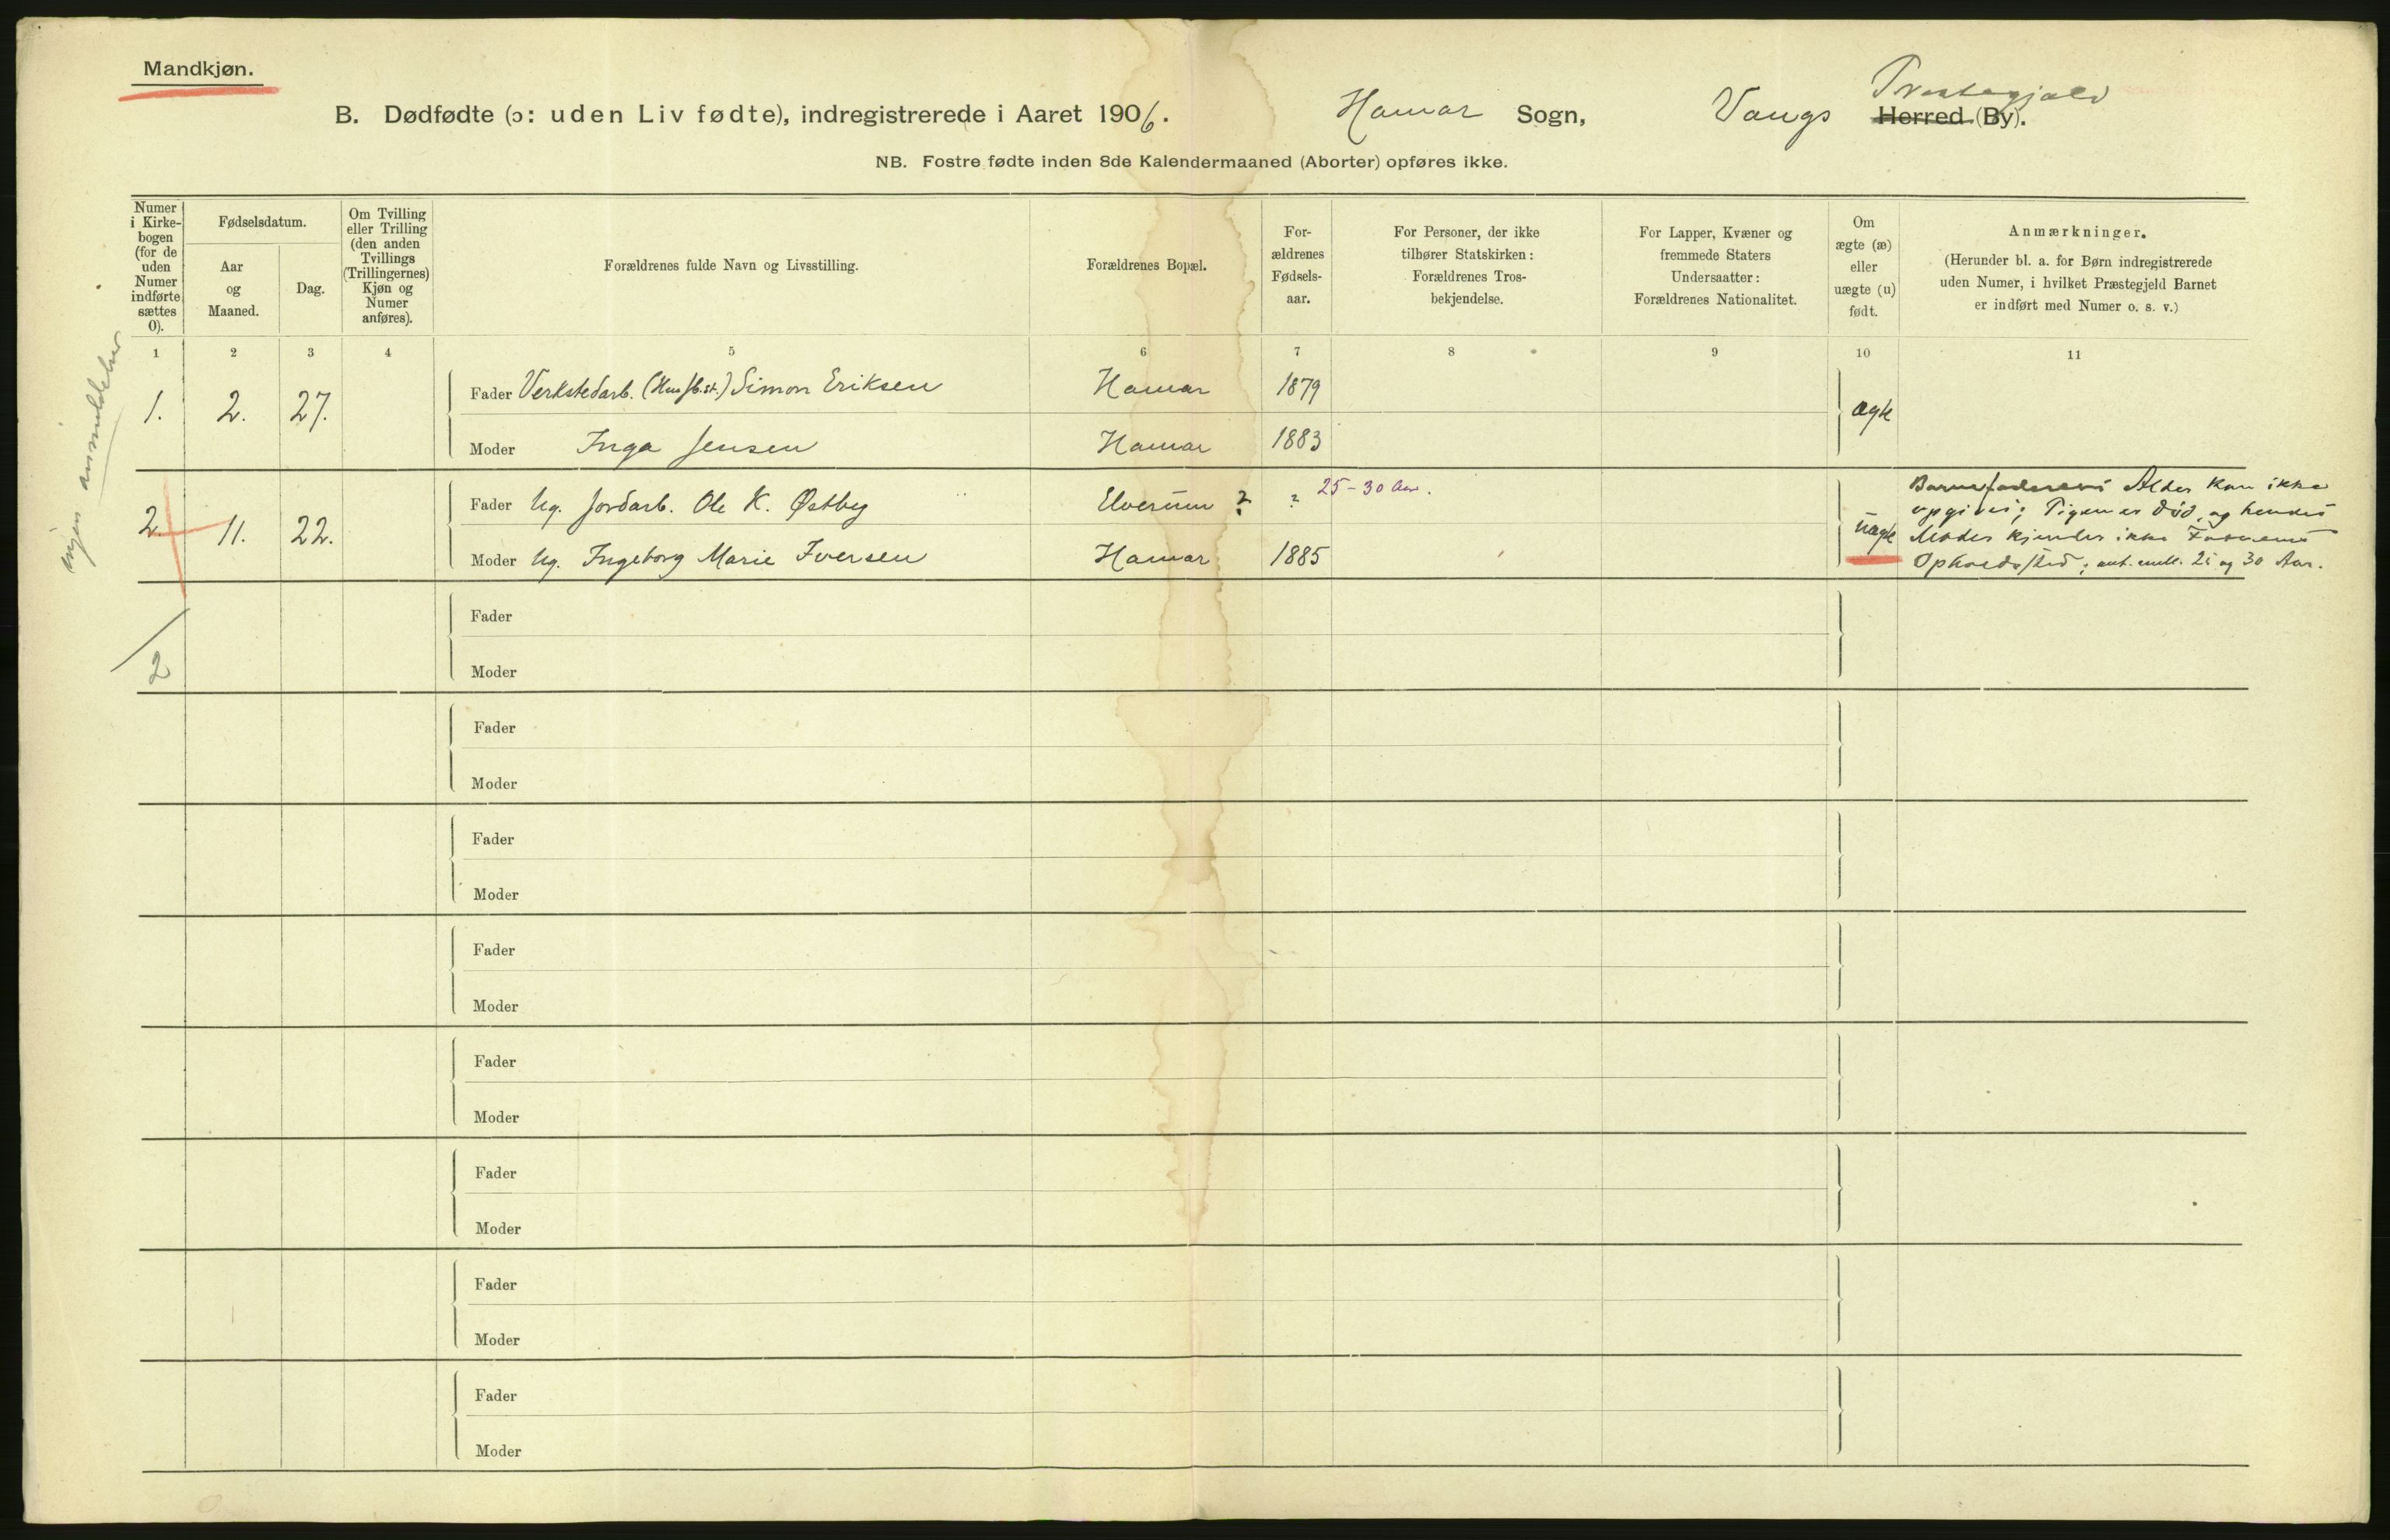 Mandkjøn.
B. Dødfødte (ɔ: uden Liv fødte), indregistrerede i Aaret 1906. Hamar Sogn, Vangs Herred (By). Præstegjeld
NB. Fostre fødte inden 8de Kalendermaaned (Aborter) opføres ikke.
Numer
i Kirke-
bogen
(for de
uden
Numer
indførte
sættes
0).
Fødselsdatum.
Aar
og
Maaned.
Dag.
Om Tvilling
eller Trilling
(den anden
Tvillings
(Trillingernes)
Kjøn og
Numer
anføres).
Forældrenes fulde Navn og Livsstilling.
Forældrenes Bopæl.
For-
ældrenes
Fødsels-
aar.
For Personer, der ikke
tilhører Statskirken:
Forældrenes Tros-
bekjendelse.
For Lapper, Kvæner og
fremmede Staters
Undersaatter:
Forældrenes Nationalitet.
Om
ægte (æ)
eller
uægte (u)
født.
Anmærkninger.
(Herunder bl. a. for Børn indregistrerede
uden Numer, i hvilket Præstegjeld Barnet
er indført med Numer o. s. v.)
1 2 3 4 5 6 7 8 9 10 11
1. 2. 27. Fader Verkstedarb. Simon Eriksen Hamar 1879 ægte
Moder Inga Jensen Hamar 1883
2 11. 22. Fader Ug. Jordarb. Ole K. Østby Elverum ? ? 25-30 Aar. uægte
Moder Ug. Ingeborg Marie Iversen Hamar 1885
Barnefaderens Alder kan ikke
opgives; Pigen er død, og hendes
Moder kjender ikke Faderens
Opholdssted; ant. mell. 25 og 30 Aar.
ingen anmeldelse
2
Fader
Moder
Fader
Moder
Fader
Moder
Fader
Moder
Fader
Moder
Fader
Moder
Fader
Moder
Fader
Moder